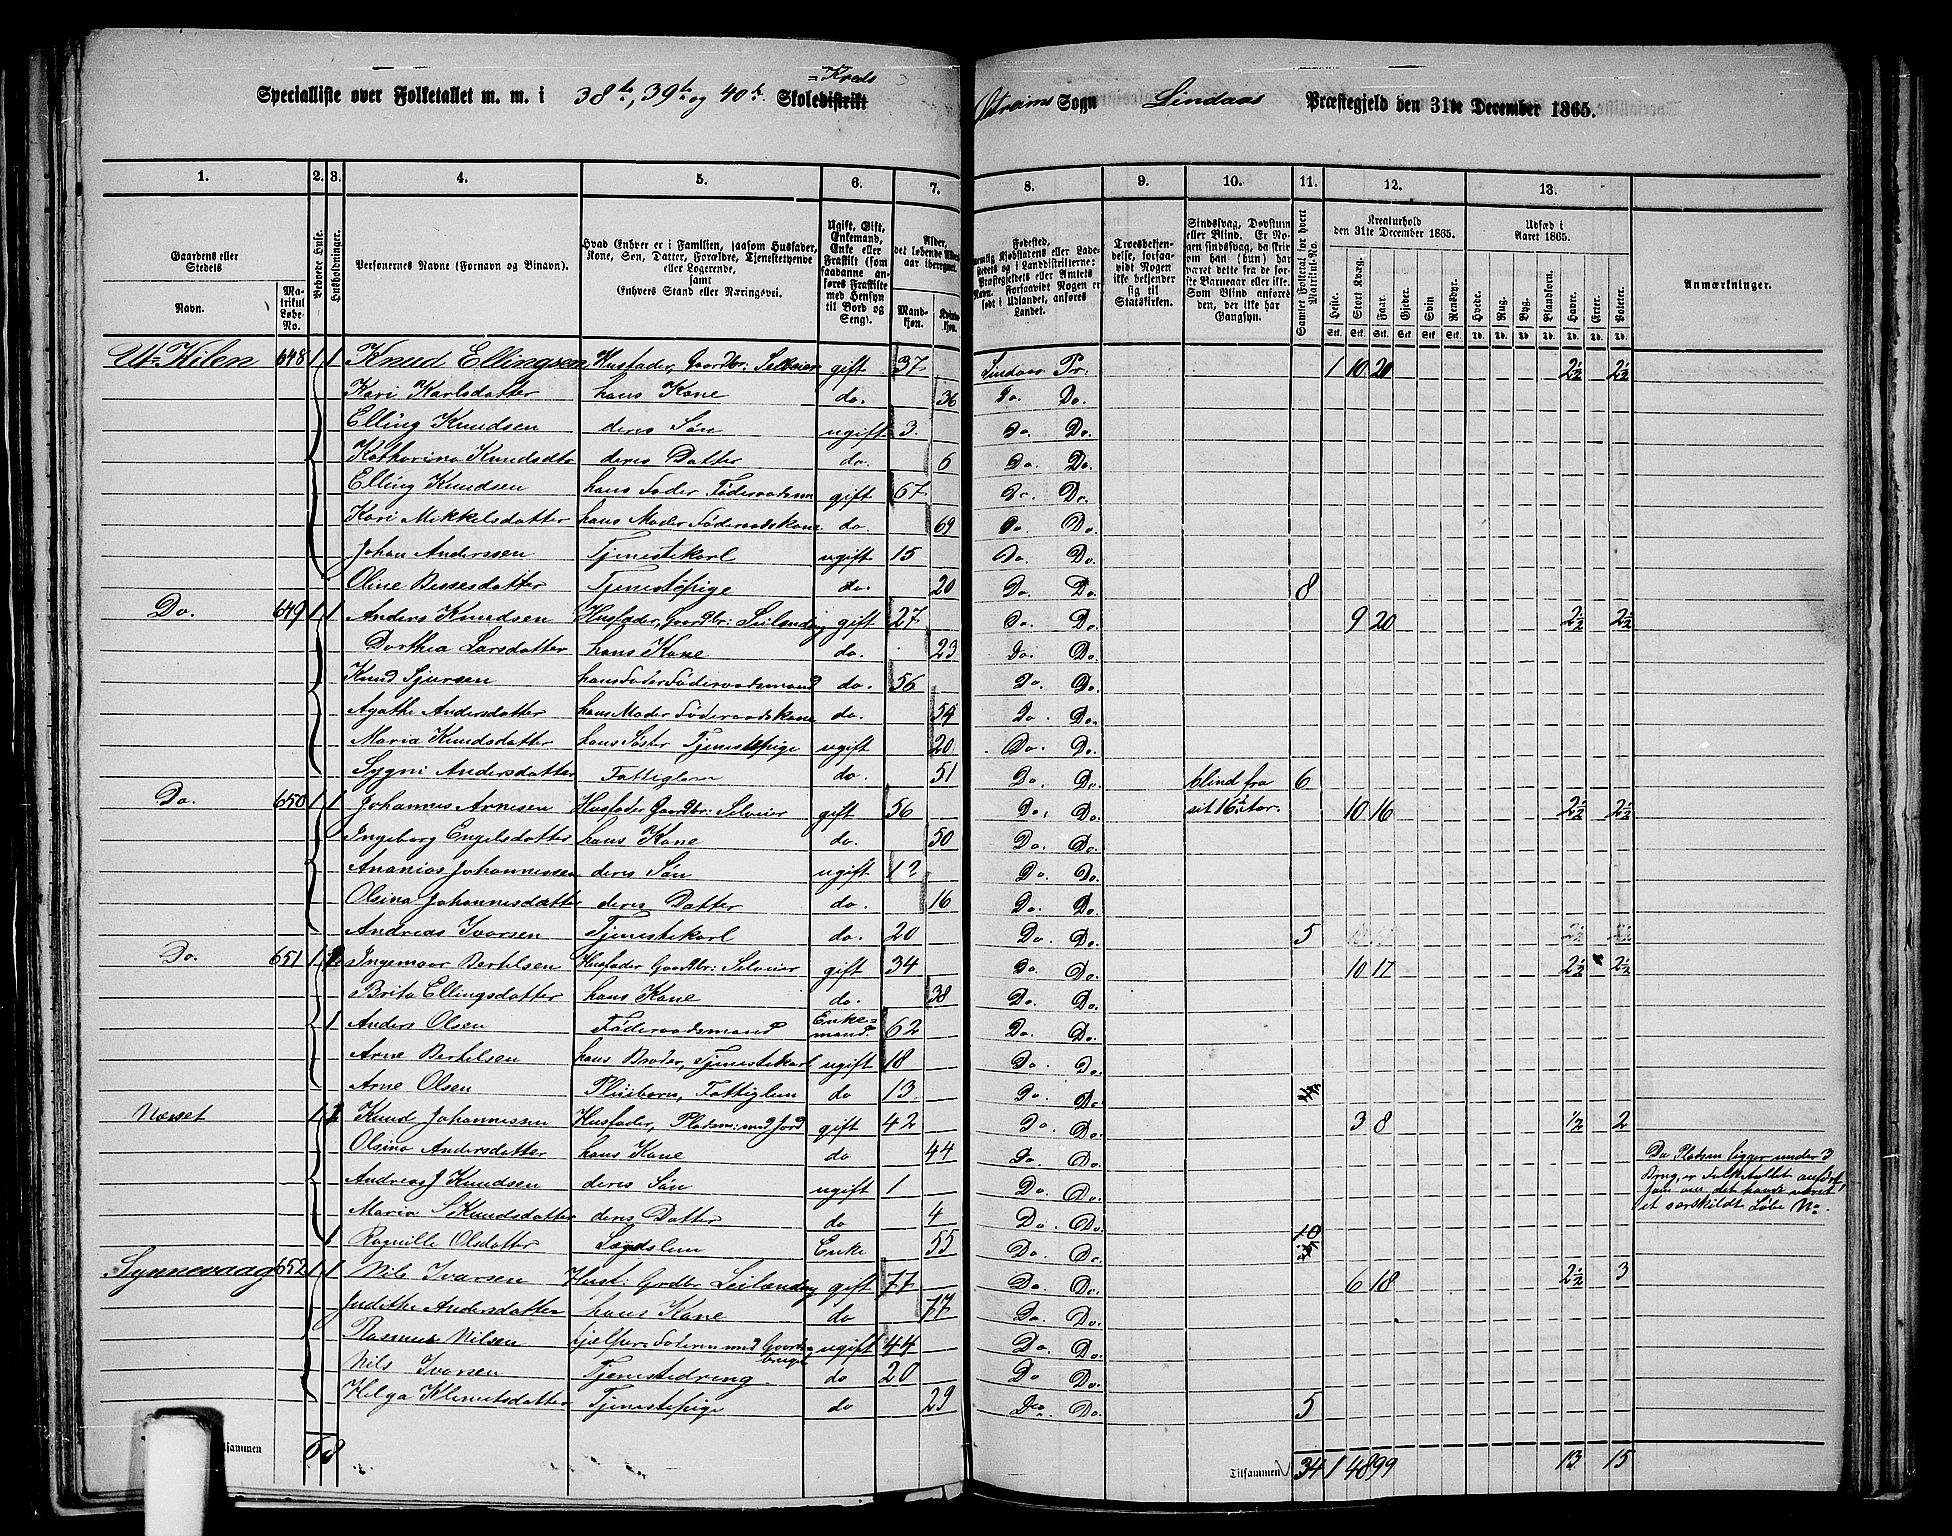 Specialliste over Folketallet m. m. i 38te, 39te og 40de Skoledistrikt =Kreds Sogn Lindaas Præstegjeld den 31te December 1865.
1. 2. 3. 4. 5. 6. 7. 8. 9. 10. 11. 12. 13.
Gaardens eller Stedets
Navn.
Matrikul Løbe-No.
Beboede Huse.
Husholdninger.
Personernes Navne (Fornavn og Binavn).
Hvad Enhver er i Familien, saasom Husfader, Kone, Søn, Datter, Forældre, Tjenestetyende eller Logerende, samt Enhvers Stand eller Næringsvei.
Ugift, Gift, Enkemand, Enke eller Fraskilt (som saadanne anføres Fraskilte med Hensyn til Bord og Seng).
Alder, det løbende Alders-aar iberegnet.
Mand-kjøn. Kvinde-kjøn.
Fødested,
Troesbekjendelse, forsaavidt Nogen ikke bekjender sig til Statskirken.
Sindssvag, Døvstum eller Blind. Er Nogen sindssvag, da skrives om han (hun) har været dette fra de første Barneaar eller ikke. Som Blind anføres den, der ikke har Gangsyn.
Samlet Folketal for hvert Matrikul-No.
Kreaturhold den 31te December 1865.
Heste. Stort Kvæg. Faar. Gjeder. Svin. Rensdyr.
Udsæd i Aaret 1865.
Hvede. Rug. Byg. Blandkorn. Havre. Erter. Poteter.
Anmærkninger.
Kilen 648 1 1 Knud Ellingsen Husfader, Gaardbr: Selveier gift 37 Lindaas Pr. 1 10 20 2½ 2½
Kari Karlsdatter hans Kone do. 36 Do. Do.
Elling Knudsen deres Søn ugift 3 Do. Do.
Katharina Knudsdtr deres Datter do. 6 Do. Do.
Elling Knudsen hans Fader Føderaadsm gift 67 Do. Do.
Kari Mikkelsdatter hans Moder Føderaadskone do. 69 Do. Do.
Johan Anderssen Tjenestekarl ugift 15 Do. Do.
Oline Bessesdatter Tjenestepige do. 20 Do. Do. 8
Do. 649 1 1 Anders Knudsen Husfader, Gaardbr: Leilænding gift 27 Do. Do. 9 20 2½ 2½
Dorthea Larsdatter hans Kone do. 23 Do. Do.
Knud Sjursen hans Fader Føderaadsmand do. 56 Do. Do.
Agathe Andersdatter hans Moder Føderaadskone do. 54 Do. Do.
Maria Knudsdatter hans Søster Tjenestepige ugift 20 Do. Do.
Sygni Andersdatter Fattiglem do. 51 Do. Do. blind fra 6
Do. 650 1 1 Johannis Arnesen Husfader Gaardbr: Selveier gift 56 Do. Do. sit 16de Aar. 10 16 2½ 2½
Ingeborg Engelsdatter hans Kone do. 50 Do. Do.
Ananias Johannessen deres Søn ugift 12 Do. Do.
Olsina Johannesdatter deres Datter do. 16 Do. Do.
Andreas Ivarsen Tjenestekarl do. 20 Do. Do. 5
Do. 651 1 Ingemaar Bertilsen Husfader Gaardbr: Selveier gift 34 Do. Do. 10 17 2½ 2½
Brita Ellingsdatter hans Kone do. 38 Do. Do.
1 Anders Olsen Føderaadsmand Enkemand. 62 Do. Do.
Arne Bertelsen hans Broder, Tjenestekarl ugift 18 Do. Do.
Arne Olsen Pleiebarn, Fattiglem do 13 Do. Do.
Næset 1 Knud Johannessen Husfader, Pladsm: med Jord gift 42 Do. Do. 3 8 ½ 2
Olsina Andersdatter hans Kone do 44 Do. Do.
Andreas J Knudsen deres Søn ugift 1 Do. Do.
Maria S Knudsdatter deres Datter do 4 Do. Do.
1 Ragnille Olsdatter Lægdslem Enke 55 Do. Do. 10
Da Pladsen ligger under 3
Brug, er Folketallet anført
som om det havde været
et særskildt Løbe No.
Synnevaag 652 1 1 Nils Ivarsen Husf: Grdbr Leilænding gift 77 Do. Do. 6 18 2½ 3
Judithe Andersdatter hans Kone do 77 Do. Do.
Rasmus Nilsen hjelper Faderen med Gaardsbruget ugift 44 Do. Do.
Nils Ivarsen Tjenestedreng do 20 Do. Do.
Helga Klemetsdatter Tjenestepige do 29 Do. Do. 5
Tilsammen 6 8
Tilsammen 34 1 48 99 13 15